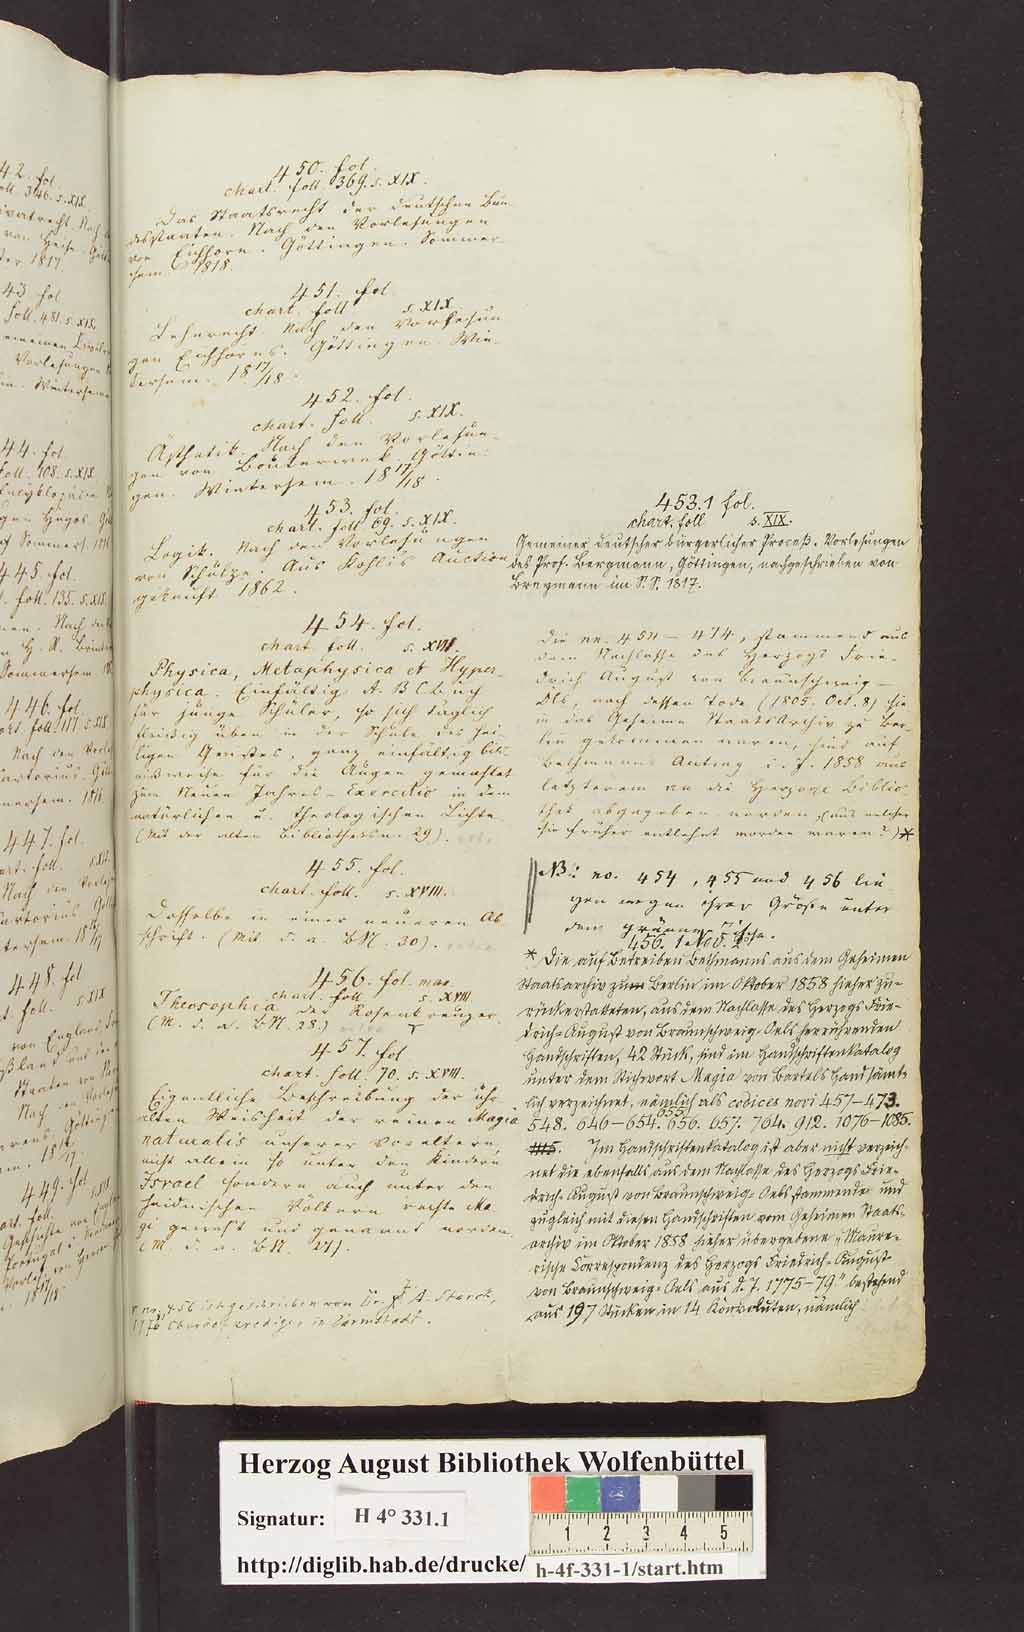 42. fol.
foll. 346. s. XIX.
1817.
43. fol.
foll. 481. s. XIX.
Vorlesungen
Wintersem
44. fol.
foll. 108. s. XIX.
445. fol.
foll. 135. s. XIX.
Nach den
Sommersem
446. fol.
foll. 117. s. XIX.
Nach den Vorles
Sartorius. Gött
447. fol.
foll.
Nach den Vorles
448. fol
foll. s. XIX
von England
Staaten von
Nach den Vorles
449. fol
foll.
Geschichte von
Portugal u.
450. fol.
chart. foll. 369. s. XIX.
Das Staatsrecht der deutschen Bun-
desstaaten. Nach den Vorlesungen
von Eichhorn. Göttingen. Sommer-
sem. 1818.
451. fol.
chart. foll s. XIX.
Lehnrecht. Nach den Vorlesun-
gen Eichhorns. Göttingen. Win-
tersem. 18 17/18.
452. fol.
chart. foll. s. XIX.
Ästhetik. Nach den Vorlesun-
gen von Bouterwek. Göttin-
gen. Wintersem. 18 17/18.
453. fol.
chart. foll 69. s. XIX.
Logik. Nach den Vorlesungen
von Schulze. Aus Kohlis Auction
gekauft 1862.
454. fol.
chart. foll. s. XVIII.
Physica, Metaphysica et Hyper-
physica. Einfältig A B C buch
für junge Schüler, so sich täglich
fleißig üben in der Schule des hei-
ligen Geistes, ganz einfältig bild-
nißweise für die Augen gemahlet
zum Neuen Jahres-Exercitio in dem
natürlichen u. theologischen Lichte
(Mit der alten Bibliotheksn. 29).
455. fol.
chart. foll. s. XVIII.
Dasselbe in einer neueren Ab-
schrift. (Mit d. a. BN. 30).
456. fol. max.
chart. foll s. XVIII.
Theosophia der Rosenkreuzer.
(M. d. a. BN. 28.)
457. fol
chart. foll. 70. s. XVIII.
Eigentliche Beschreibung der uhr-
alten Weisheit der reinen Magia
naturalis unserer Voreltern
nicht allein so unter den Kindern
Israel sondern auch unter den
heidnischen Völkern rechte Ma-
gi geweßt und genannt worden.
(M. d. a. BN. 27).
no. 456 ist geschrieben von Dr. J. A. Starck,
Oberhofprediger in Darmstadt.
453.1 fol.
chart. foll s. XIX.
Gemeiner deutscher bürgerlicher Proceß. Vorlesungen
des Prof. Bergmann, Göttingen, nachgeschrieben von
Bregmann im S. S. 1817.
Die nn. 454 – 474, stammend aus
dem Nachlasse des Herzogs Frie-
drich August von Braunschweig –
Öls, nach dessen Tode (1805. Oct. 8) sie
in das Geheime StaatsArchiv zu Ber-
lin gekommen waren, sind auf
Bethmanns Antrag i. J. 1858 aus
letzterem an die Herzogl. Biblio-
thek abgegeben worden, (aus welcher
sie früher entlehnt worden waren?) *
NB: no. 454, 455 und 456 lie-
gen wegen ihrer Größe unter
dem grünen Tische.
456. 1 Nov. 2°
* Die auf Betreiben Bethmanns aus dem Geheimen
Staatsarchiv zum Berlin im Oktober 1858 hieher zu-
rückerstatteten, aus dem Nachlasse des Herzogs Frie-
drich-August von Braunschweig-Oels herrührenden
Handschriften, 42 Stück, sind im Handschriftenkatalog
unter dem Stichwort Magia von Bartels Hand sämt-
lich verzeichnet, nämlich als codices novi 457–473.
548. 646–654. 655. 656. 657. 764. 912. 1076–1085.
Im Handschriftenkatalog ist aber nicht verzeich-
net die ebenfalls aus dem Nachlasse des Herzogs Frie-
drich-August von Braunschweig-Oels stammende und
zugleich mit diesen Handschriften vom Geheimen Staats-
archiv im Oktober 1858 hieher übergebene „Maure-
rische Correspondenz des Herzogs Friedrich-August
von Braunschweig-Oels aus d. J. 1775–79" bestehend
aus 197 Stücken in 14 Konvoluten, nämlich
Herzog August Bibliothek Wolfenbüttel
Signatur: H 4° 331.1
1 2 3 4 5
http://diglib.hab.de/drucke/ h-4f-331-1/start.htm